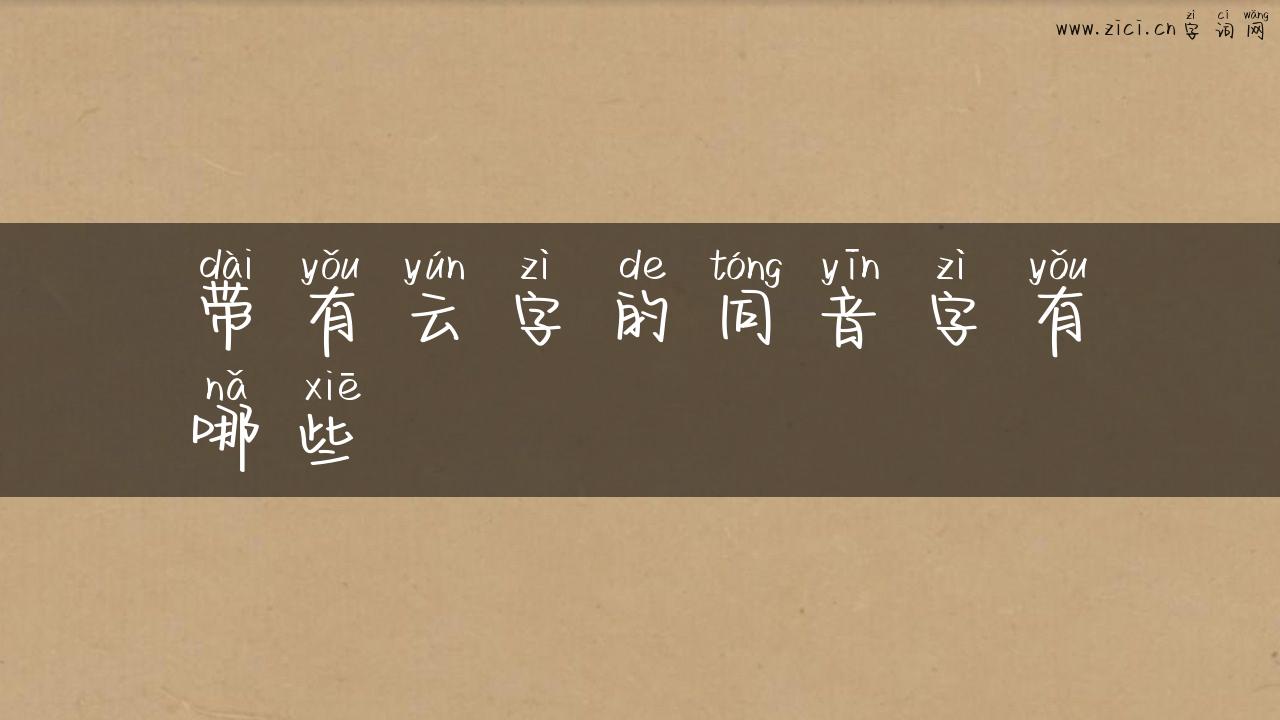 zì cí wǎng
www.zici.cn 字 词 网
dài yǒu yún zì de tóng yīn zì yǒu
带 有 云 字 的 同 音 字 有
nǎ xiē
哪 些